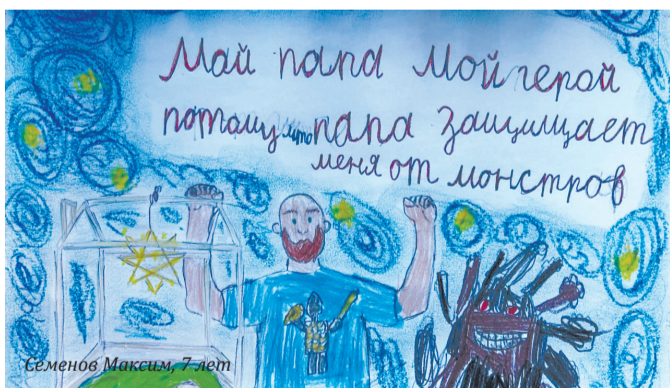 Май папа мой герой
потому что папа защищает
меня от монстров
Семенов Максим, 7 лет